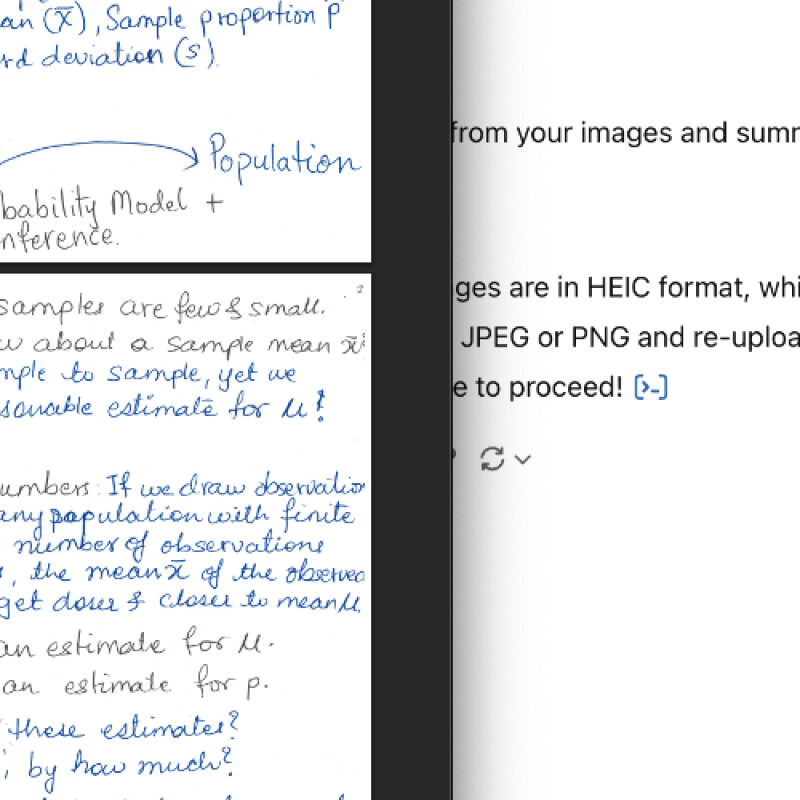 an (x̄), Sample proportion p
rd deviation (s).
Population
bability Model +
nference.
2
samples are few & small.
w about a sample mean x̄
mple to sample, yet we
sonable estimate for μ?
umbers: If we draw observation
any population with finite
number of observations
, the mean x̄ of the observed
get closer & closer to mean μ.
an estimate for μ.
an estimate for p.
these estimates?
, by how much?
from your images and summ
ges are in HEIC format, whi
JPEG or PNG and re-uploa
e to proceed! [>-]